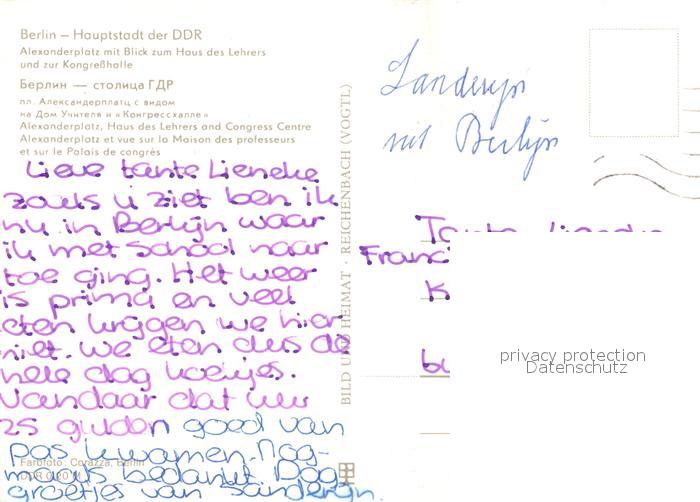 Berlin – Hauptstadt der DDR
Alexanderplatz mit Blick zum Haus des Lehrers
und zur Kongreßhalle
Берлин — столица ГДР
пл. Александерплатц с видом
на Дом Учителя и «Конгрессхалле»
Alexanderplatz, Haus des Lehrers and Congress Centre
Alexanderplatz et vue sur la Maison des professeurs
et sur le Palais de congrès
Lieve tante Lieneke
zoals u ziet ben ik
nu in Berlijn waar
ik met school naar
toe ging. Het weer
is prima en veel
eten krijgen we hier
niet. we eten dus de
hele dag koekjes.
Vandaar dat uw
25 gulden goed van
pas kwamen. Nog-
maals bedankt. Dag
groetjes van Sanderijn.
Farbfoto: Corazza, Berlin
BILD UND HEIMAT · REICHENBACH (VOGTL)
Sanderijn
uit Berlijn
Tante
Franci
K
bu
privacy protection
Datenschutz